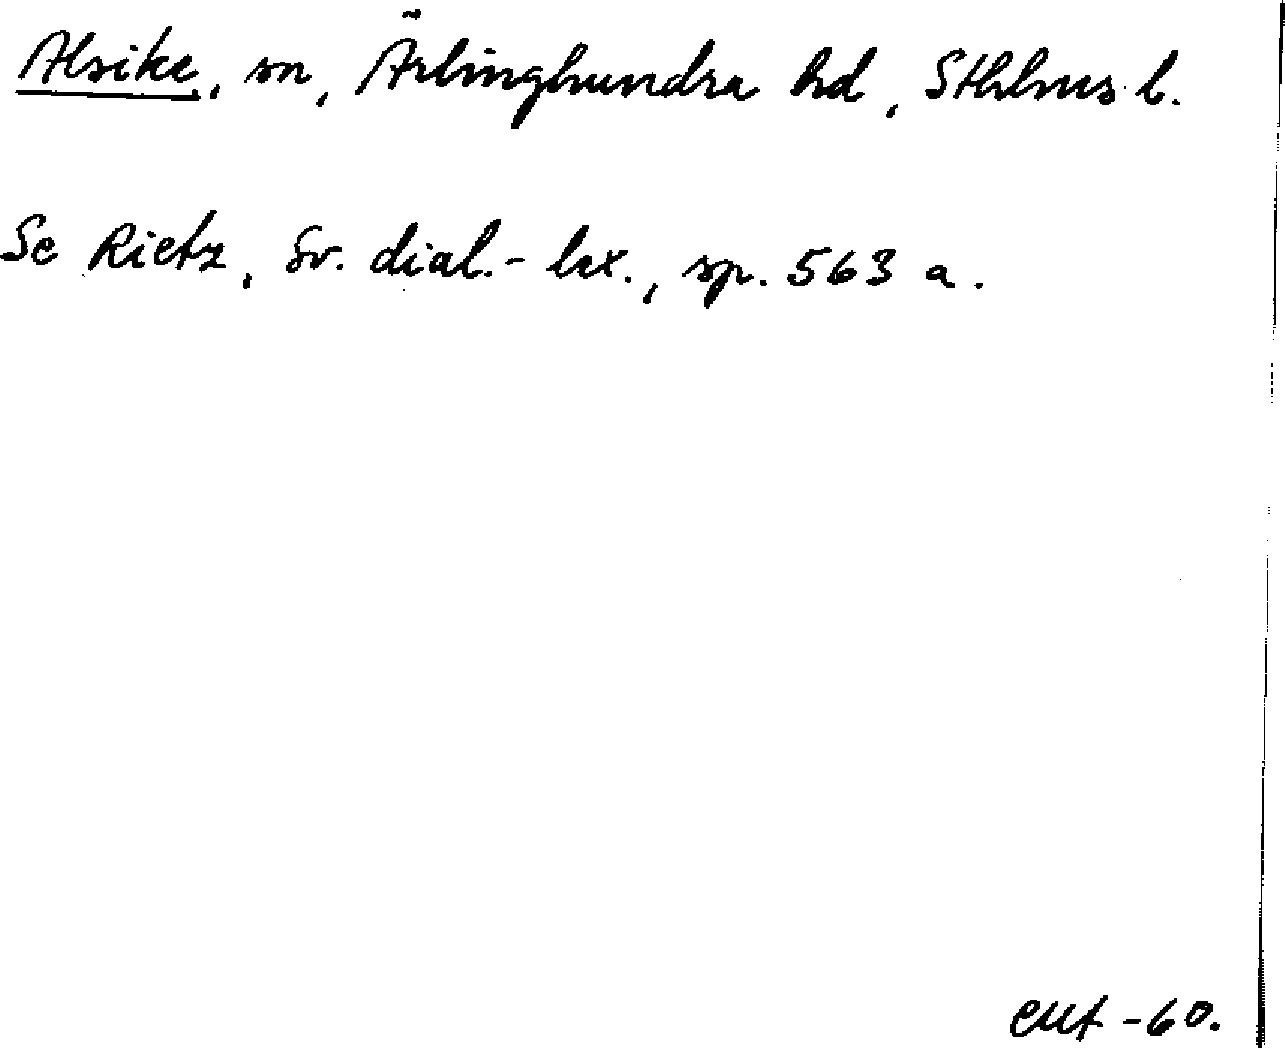 Alsike, sn, Ärlinghundra hd, Sthlms l.
Se Rietz, Sv. dial.-lex., sp. 563 a.
-60.